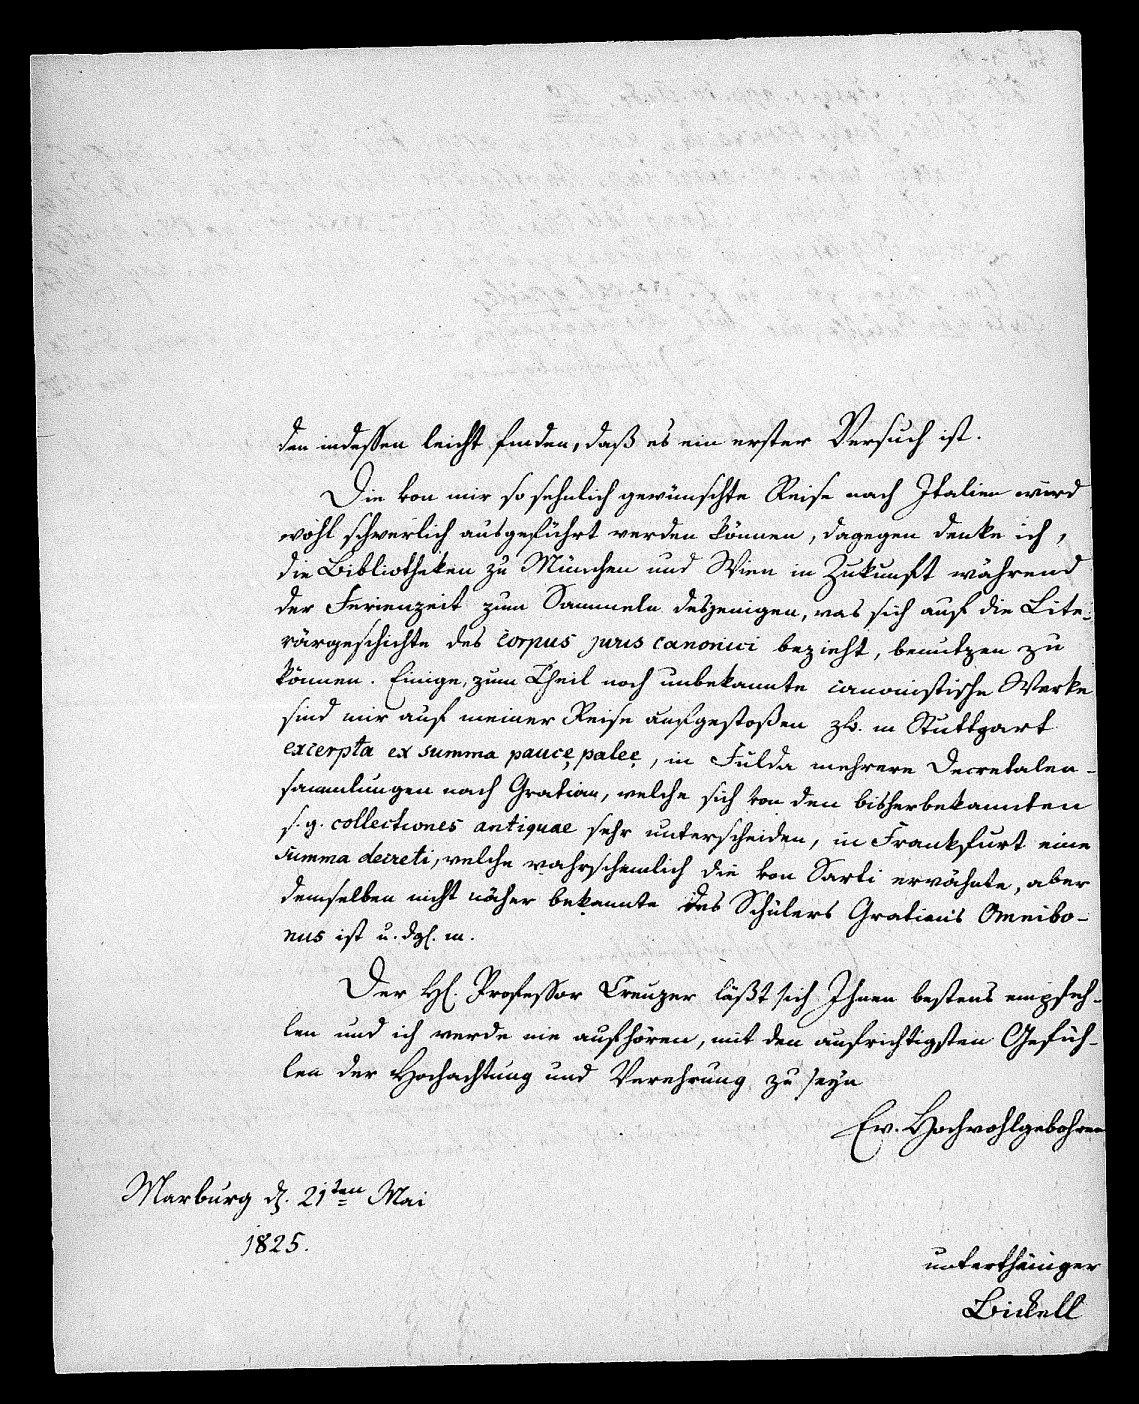 den indessen leicht finden, daß es ein erster Versuch ist.
Die von mir so sehnlich gewünschte Reise nach Italien wird
wohl schwerlich ausgeführt werden können, dagegen denke ich,
die Bibliotheken zu München und Wien in Zukunft während
der Ferienzeit zum Sammeln desjenigen, was sich auf die Lite-
rärgeschichte des corpus juris canonici bezieht, benutzen zu
können. Einige, zum Theil noch unbekannte canonistische Werke
sind mir auf meiner Reise aufgestoßen zb. in Stuttgart
excerpta ex summa pauce palee, in Fulda mehrere Decretalen-
sammlungen nach Gratian, welche sich von den bisherbekannten
s. g. collectiones antiquae sehr unterscheiden, in Frankfurt eine
summa decreti, welche wahrscheinlich die von Sarti erwähnte, aber
demselben nicht näher bekannte des Schülers Gratians Omnibo-
nus ist u. dgl. m.
Der H. Professor Creuzer läßt sich Ihnen bestens empfeh-
len und ich werde nie aufhören, mit den aufrichtigsten Gefüh-
len der Hochachtung und Verehrung zu seyn
Ew. Hochwohlgebohren
Marburg d. 21ten Mai
1825.
unterthäniger
Bickell